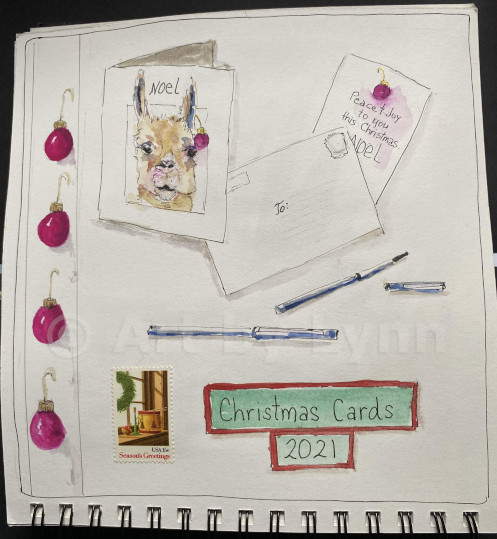 NOEL
Peace & Joy
to you
this Christmas.
NOEL
To:
© Art by Lynn
USA 15c
Season's Greetings
Christmas Cards
2021